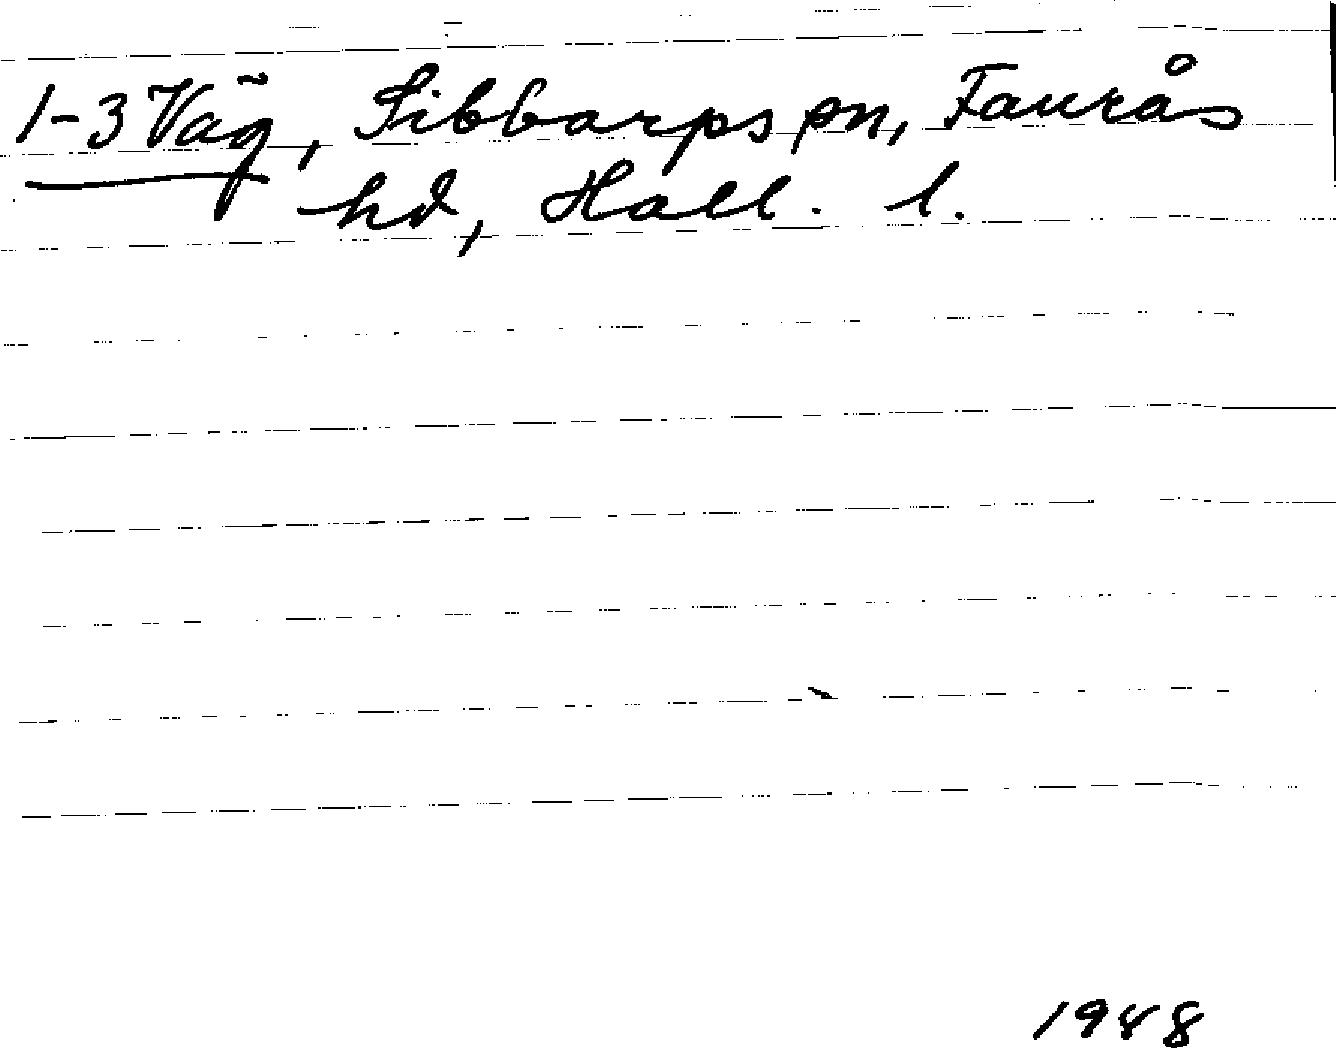 1-3 Väg, Sibbarps sn, Faurås
hd, Hall. l.
1948